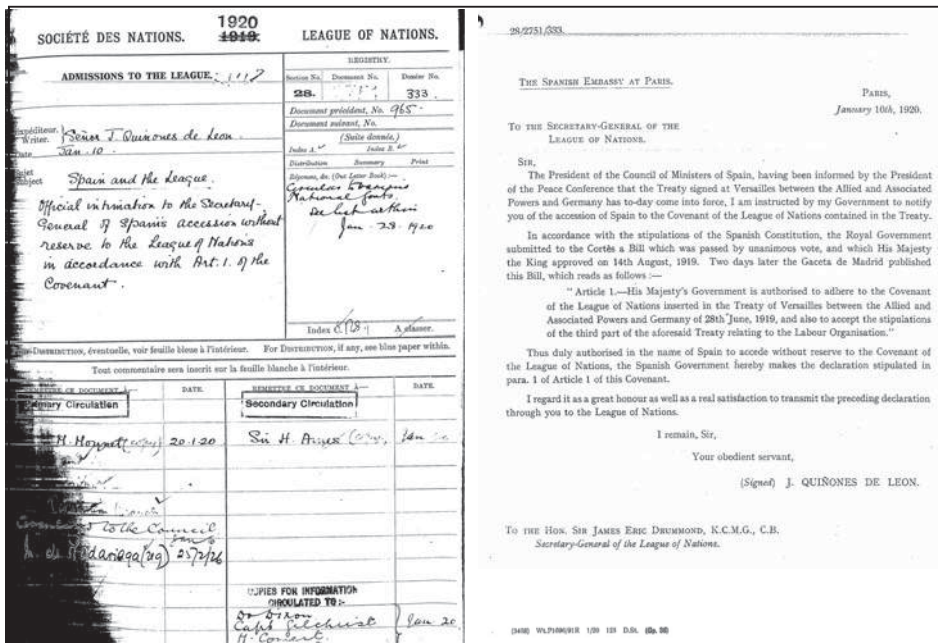 1920
SOCIÉTÉ DES NATIONS. 1919. LEAGUE OF NATIONS.
ADMISSIONS TO THE LEAGUE.
REGISTRY.
Section No. Document No. Dossier No.
28. 333
Document précédent, No. 965.
Document suivant, No.
(Suite donnée.)
Index A. Index B.
Distribution Summary Print
Réponse, &c. (Out Letter Book) :—
Circular to various
National Govts.
See list within
Jan. 28. 1920
Writer. Señor J. Quinones de Leon.
Date Jan. 10
Subject Spain and the League.
Official intimation to the Secretary-
General of Spain's accession without
reserve to the League of Nations
in accordance with Art. 1. of the
Covenant.
Index A classer.
DISTRIBUTION, éventuelle, voir feuille bleue à l'intérieur. For DISTRIBUTION, if any, see blue paper within.
Tout commentaire sera inscrit sur la feuille blanche à l'intérieur.
REMETTRE CE DOCUMENT À— DATE. REMETTRE CE DOCUMENT À— DATE.
Primary Circulation Secondary Circulation
20.1.20 Sir H.
to the Council
25/2/26
COPIES FOR INFORMATION
CIRCULATED TO :-
Dr Dixon
Capt Gilchrist Jan 20
28/2751/333.
THE SPANISH EMBASSY AT PARIS.
PARIS,
January 10th, 1920.
TO THE SECRETARY-GENERAL OF THE
LEAGUE OF NATIONS.
SIR,
The President of the Council of Ministers of Spain, having been informed by the President
of the Peace Conference that the Treaty signed at Versailles between the Allied and Associated
Powers and Germany has to-day come into force, I am instructed by my Government to notify
you of the accession of Spain to the Covenant of the League of Nations contained in the Treaty.
In accordance with the stipulations of the Spanish Constitution, the Royal Government
submitted to the Cortès a Bill which was passed by unanimous vote, and which His Majesty
the King approved on 14th August, 1919. Two days later the Gaceta de Madrid published
this Bill, which reads as follows :—
" Article 1.—His Majesty's Government is authorised to adhere to the Covenant
of the League of Nations inserted in the Treaty of Versailles between the Allied and
Associated Powers and Germany of 28th June, 1919, and also to accept the stipulations
of the third part of the aforesaid Treaty relating to the Labour Organisation."
Thus duly authorised in the name of Spain to accede without reserve to the Covenant of
the League of Nations, the Spanish Government hereby makes the declaration stipulated in
para. 1 of Article 1 of this Covenant.
I regard it as a great honour as well as a real satisfaction to transmit the preceding declaration
through you to the League of Nations.
I remain, Sir,
Your obedient servant,
(Signed) J. QUIÑONES DE LEON.
TO THE HON. SIR JAMES ERIC DRUMMOND, K.C.M.G., C.B.
Secretary-General of the League of Nations.